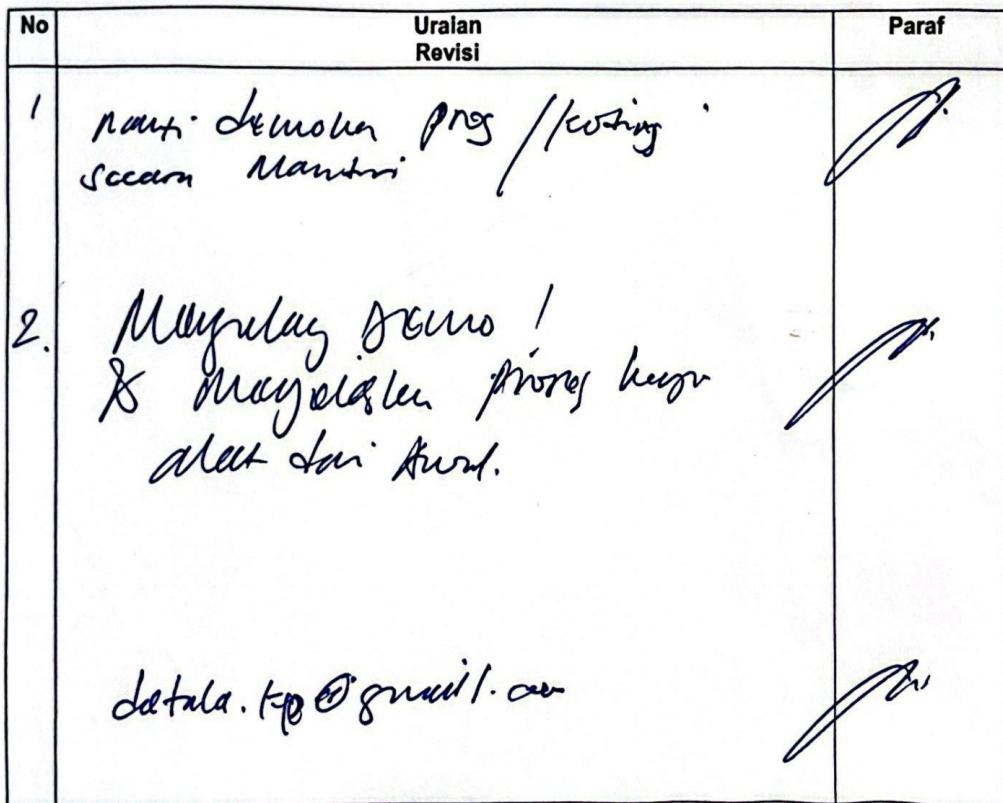 No Uraian Revisi Paraf
1 nanti demokan prog /koding
secara Mandiri
2. Mengulang Demo!
& menjelaskan proses kerja
alat dari Awal.